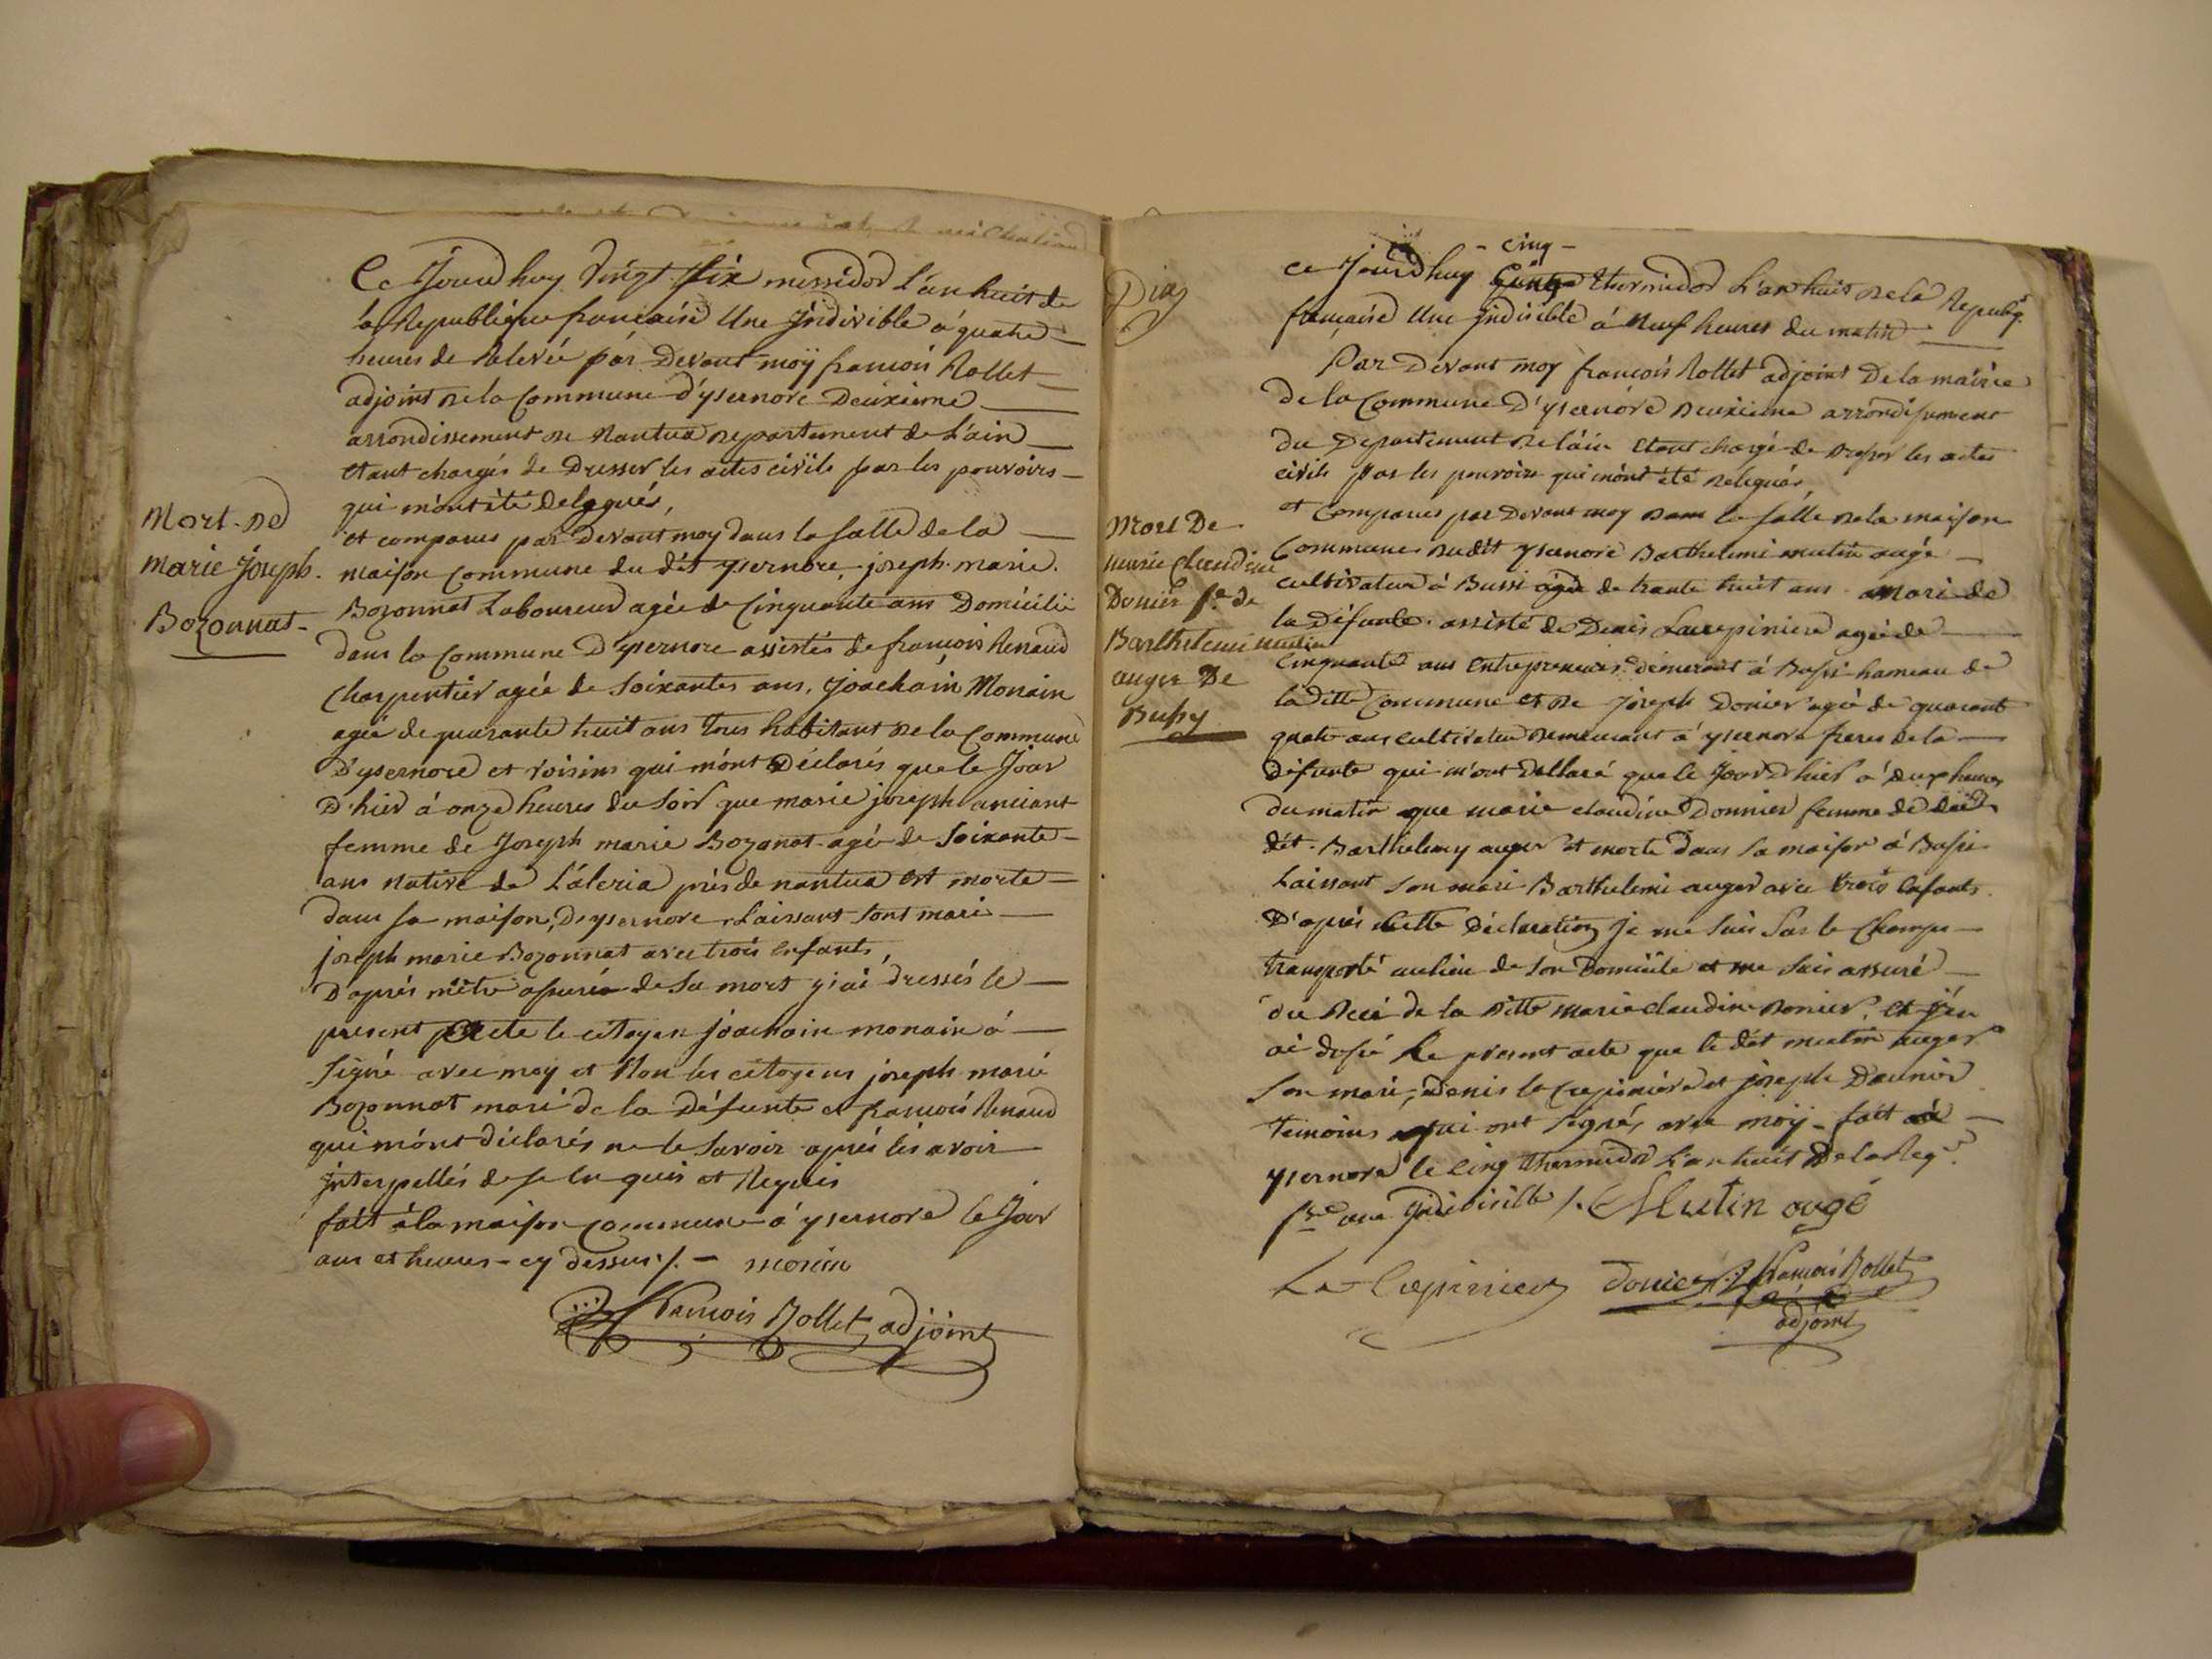 Ce Jourd huy vingt six messidor L'an huit de
la Republique francaise Une Jndivisible a quatre
heures de Relevée par Devant moÿ francois Rollet
adjoint de la Commune d'ysernore Deuxieme
arrondissement de Nantua departement de L'ain
etant chargés de Dresser les actes civils par les pouvoirs
qui m'ont été delegués,
Mort de
marie Joseph.
Bozonnat
et comparus par Devant moy dans la salle de la
maison Commune du dit ysernore, joseph marie.
Bozonnat Laboureur agée de Cinquante ans Domicilié
dans la Commune D'ysernore assistés de francois Renaud
Charpentier agée de soixantes ans, Joachain Monain
agée de quarante huit ans tous habitant de la Commune
D'ysernore et voisins qui m'ont Déclarés que le Jour
D'hier à onze heures du soir que marie joseph anciant
femme de Joseph marie Bozonat agée de Soixante
ans native de L'aleria près de nantua est morte
dans sa maison, D'ysernore Laissant sont mari
joseph marie Bozonnat avec trois enfants,
D'après m'être assurée de sa mort j'ai dressés le
present acte le citoyen joachain monain à
signé avec moy et Non les citoyens joseph marie
Bozonnat mari de la Défunte et francois Renaud
qui m'ont déclarés ne le savoir après les avoir
interpellés de ce enquis et Requis
fait à la maison commune à ysernore le Jour
ans et heures cy dessus ./. monin
francois Rollet adjoint
- cinq -
ce Jourdhuy thermidor L'an huit de la Republ.
francaise Une jndisible à Neuf heures du matin
Par Devant moy francois Rollet adjoint De la mairie
de la Commune D'ysernore Deuxieme arrondissement
du Departement de l'ain etant chargé de dresser les actes
civils par les pouvoirs qui m'ont été deleguée
Mort De
marie Claudine
Donier fe. de
Barthelemi mutin
auger De
Bussy
et Comparus par Devant moy dans la salle de la maison
Commune dudit ysernore Barthelemi mutin augé
cultivateur à Bussi agée de trante huit ans mari de
la Défunte. assisté de Denis Lacrepiniere agée de
Cinquante ans Entrepreneur demeurant à Bussi hameau de
la ditte Commune et de Joseph Donier agée de quarant
quatr ans cultivateur demeurant à ysernore freres de la
défunte qui m'ont dellaré que le Jour D'hier à heures
du matin que marie claudine Donnier femme de
dit Barthelemy auger et morte dans sa maison à Bussi
Laissant son mari Barthelemi auger avec trois enfants.
D'après cette Déclaration je me suis sur le Champs
transporté au lieu de son Domicile et me suis assuré
du Deci de la ditte marie claudine Donier. et j'en
ai dressé le present acte que le dit mutin auger
son mari, Denis la Crepiniere et joseph Dounier
temoins qui ont signés avec moÿ fait à
ysernore le cinq thermidor L'an huit De la Rep.
fse une jndivisible ./. Mutin ougé
La Crepiniere donier francois Rollet
adjoint